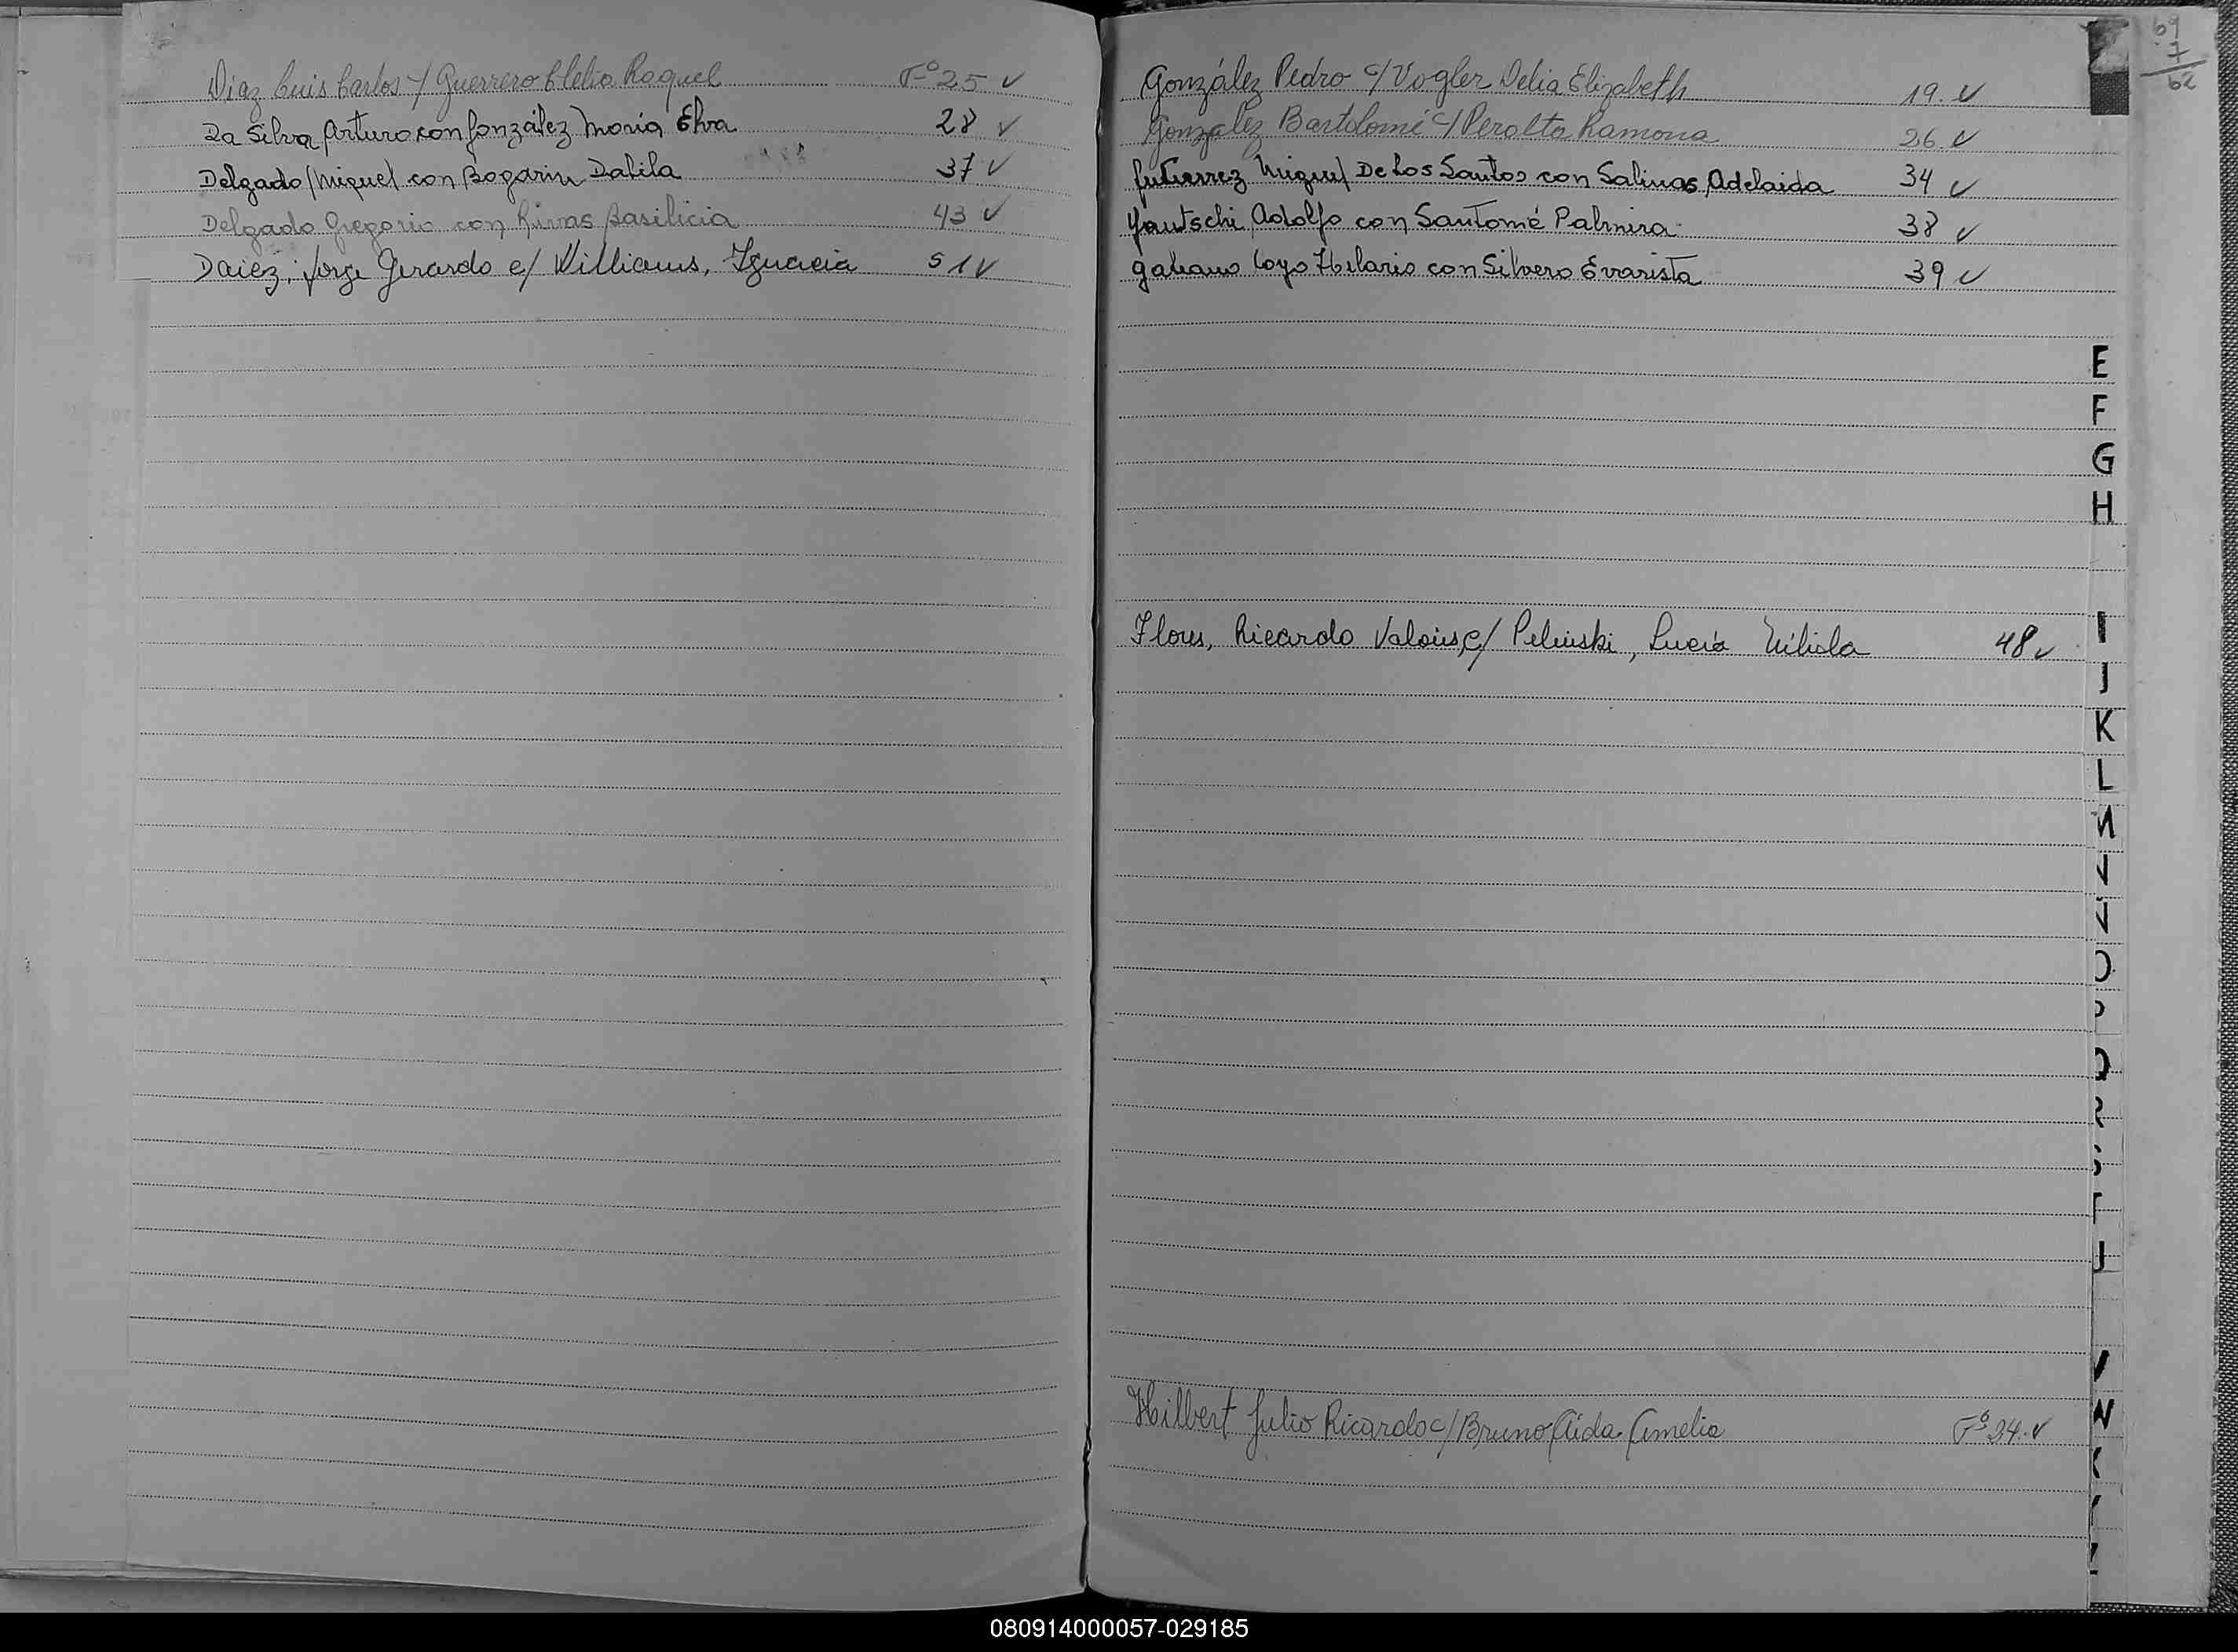 Diaz Luis Carlos c/ Guerrero Clelia Raquel Fº 25 ✓
Da Silva Arturo con González Maria Elva 28 ✓
Delgado Miguel con Bogarin Dalila 37 ✓
Delgado Gregorio con Rivas Basilicia 43 ✓
Daiez, Jorge Gerardo c/ Williams, Ignacia 51 ✓
69
7
62
González Pedro c/ Vogler Delia Elizabeth 19. ✓
González Bartolomé c/ Peralta Ramona 26. ✓
Gutierrez Miguel De Los Santos con Salinas Adelaida 34 ✓
Gautschi Adolfo con Santomé Palmira 38 ✓
Galeano Goyo Hilario con Silvero Evarista 39 ✓
E
F
G
H
I
Flores, Ricardo c/ Lucía 48 ✓
J
K
L
M
N
O
P
Q
R
S
T
U
V
Hilbert Julio Ricardo c/ Bruno Aida Amelia Fº 24. ✓
W
X
Y
Z
080914000057-029185